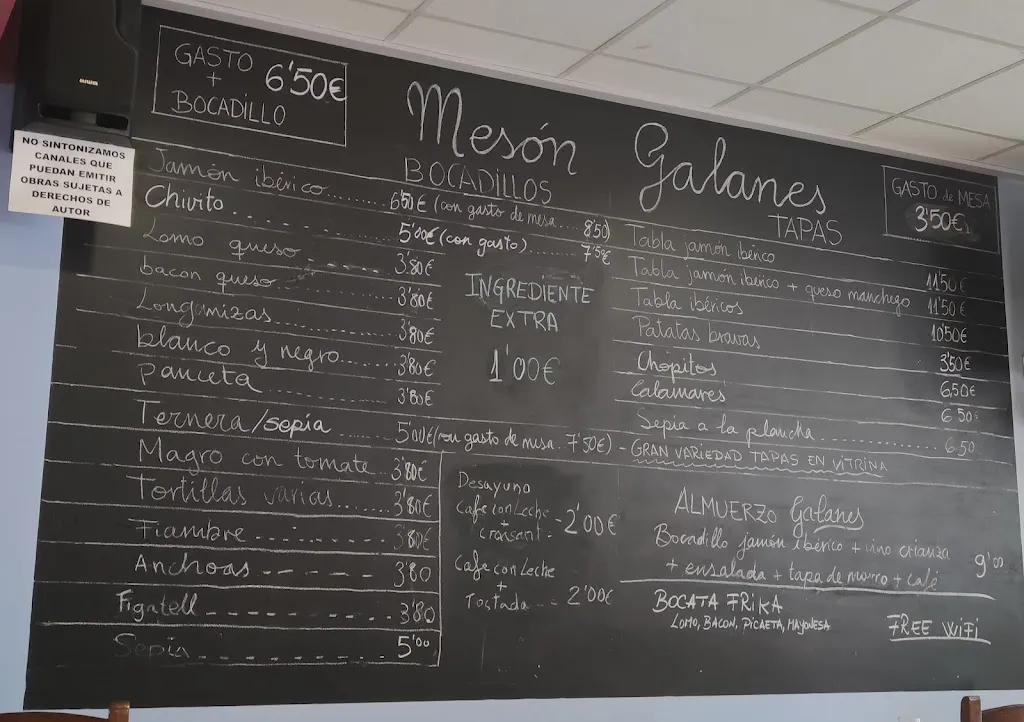 GASTO
+
BOCADILLO
6'50€
Mesón Galanes
GASTO de MESA
3'50€
NO SINTONIZAMOS
CANALES QUE
PUEDAN EMITIR
OBRAS SUJETAS A
DERECHOS DE
AUTOR
BOCADILLOS
Jamón ibérico... 6'50€ (con gasto de mesa... 8'50)
Chivito.......... 5'00€ (con gasto)........ 7'50€
Lomo queso ------ 3'80€
bacon queso .......... 3'80€
Longanizas.......... 3'80€
blanco y negro...... 3'80€
panceta ......... 3'80€
Ternera/sepia ...... 5'00€ (con gasto de mesa. 7'50€)
Magro con tomate.. 3'80€
Tortillas varias.... 3'80€
Fiambre --------- 3'80€
Anchoas ----- 3'80
Figatell -------- 3'80
Sepia --------- 5'00
INGREDIENTE
EXTRA
1'00€
TAPAS
Tabla jamón ibérico 11'50€
Tabla jamón ibérico + queso manchego 11'50€
Tabla ibéricos 10'50€
Patatas bravas 3'50€
Chopitos 6'50€
Calamares 6'50
Sepia a la plancha............... 6'50
- GRAN VARIEDAD TAPAS EN VITRINA
Desayuno
Cafe con Leche
+
croisant - 2'00€
Cafe con Leche
+
Tostada -- 2'00€
ALMUERZO Galanes
Bocadillo jamón ibérico + vino crianza
+ ensalada + tapa de morro + café 9'00
BOCATA FRIKA
LOMO, BACON, PICAETA, MAYONESA
FREE WiFi